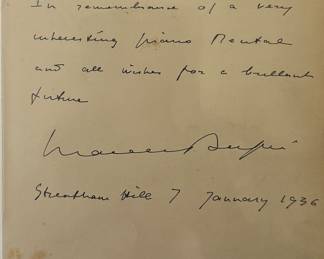 In remembrance of a very
interesting piano Recital
and all wishes for a brilliant
future
Marcel Dupré
Streatham Hill 7 January 1936